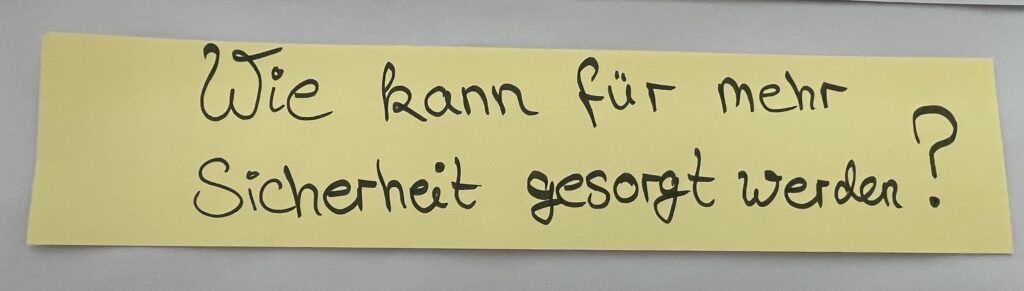 Wie kann für mehr
Sicherheit gesorgt werden?